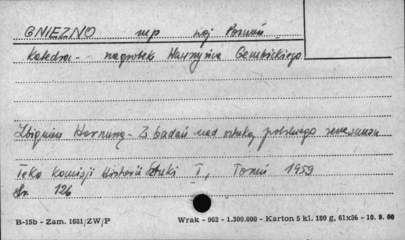 GNIEZNO mp woj Poznań
Katedra - nagrobek Wawrzyńca Gembickiego
Zbigniew Hornung - Z badań nad sztuką polskiego renesansu
Teka Komisji Historii Sztuki I, Toruń 1959
str. 126
B-15b - Zam. 1681/ZW/P Wrak - 962 - 1.300.000 - Karton 5 kl. 180 g, 61x86 - 10.9.60